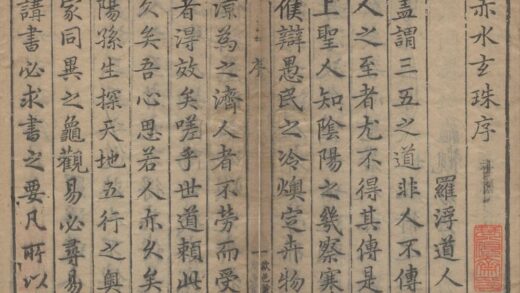 赤水玄珠序
羅浮道人
盖謂三五之道非人不傳
人之至者尤不得其傳是
上聖人知陰陽之幾察寒
候辯愚民之冷燠定卉物
序
涼為之濟人者不勞而受
者淂效矣嗟乎世道頼此
久矣吾心思若人亦久矣
陽孫生探天地五行之奥
家同異之龜觀易必尋易
講書必求書之要凡所以